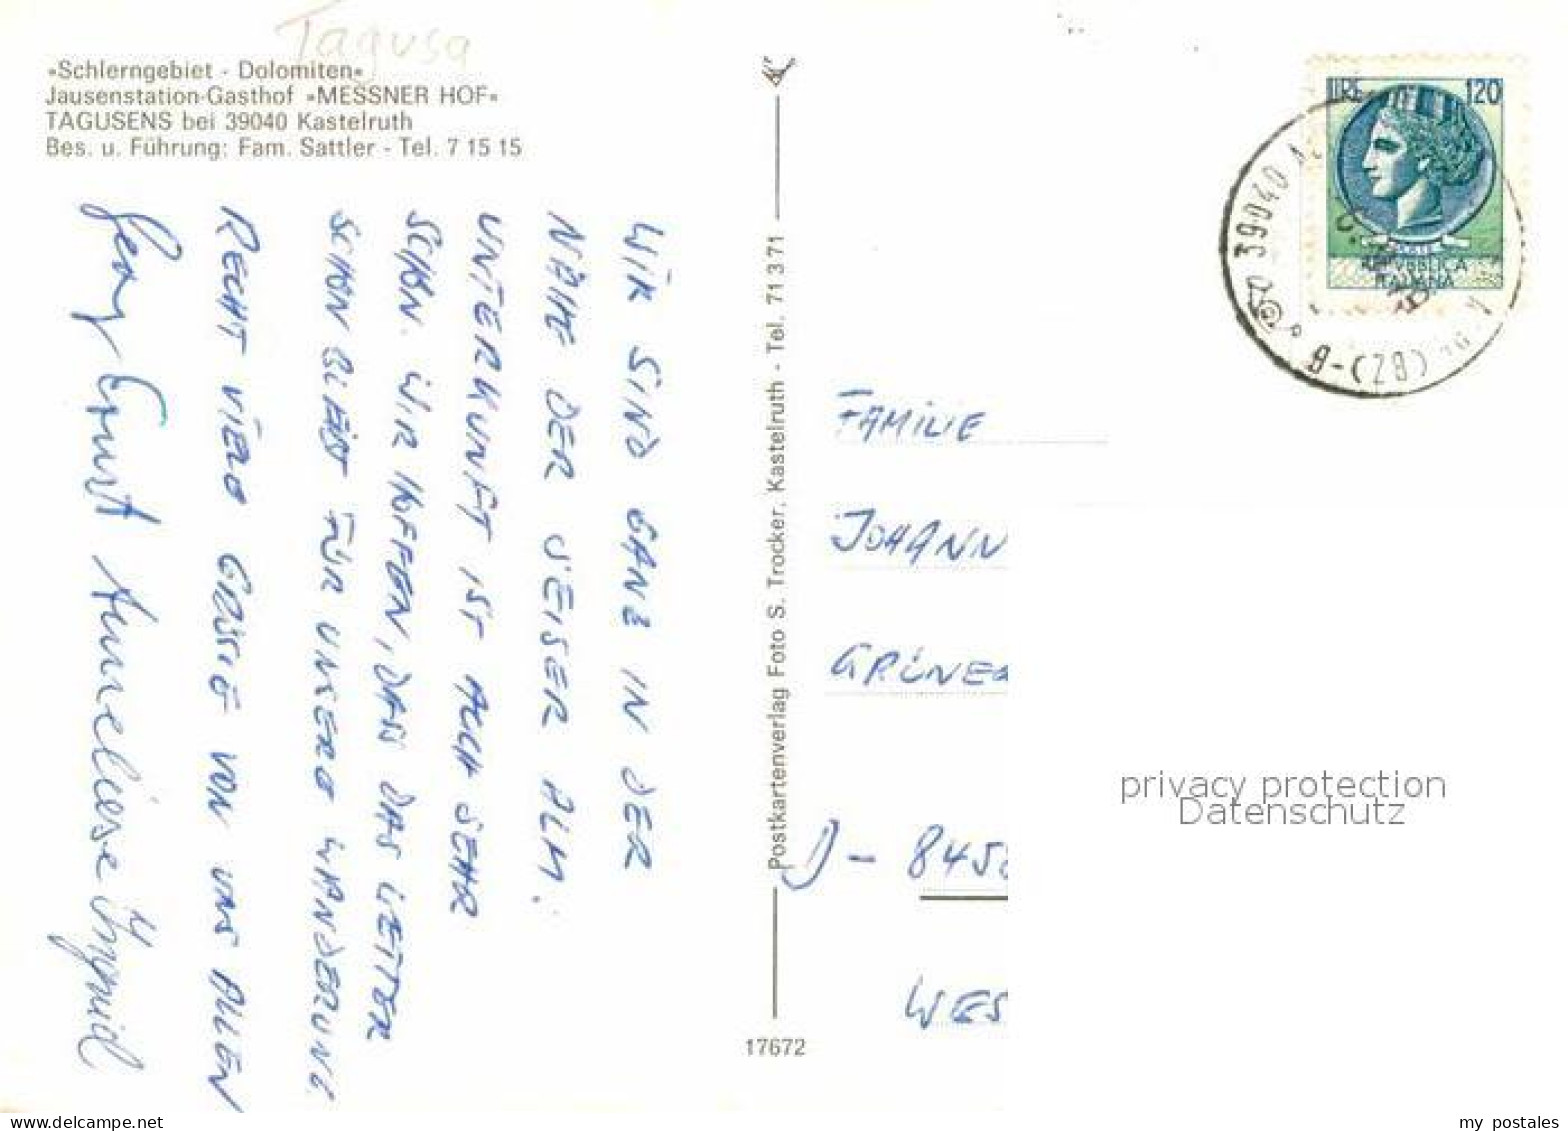 Tagusa
»Schlerngebiet - Dolomiten«
Jausenstation-Gasthof »MESSNER HOF«
TAGUSENS bei 39040 Kastelruth
Bes. u. Führung: Fam. Sattler - Tel. 7 15 15
WIR SIND GANZ IN DER
NÄHE DER SEISER ALM.
UNTERKUNFT IST AUCH SEHR
SCHÖN. WIR HOFFEN, DASS DAS WETTER
SCHÖN BLEIBT FÜR UNSERE WANDERUNG.
RECHT VIELE GRÜSSE VON UNS ALLEN
Georg Ernst Anneliese Ingrid
Postkartenverlag Foto S. Trocker, Kastelruth - Tel. 71371
17672
LIRE 120
REPVBBLICA
ITALIANA
39040
(BZ)-B
FAMILIE
JOHANN
GRÜNE
D- 845
WES
privacy protection
Datenschutz
my postales